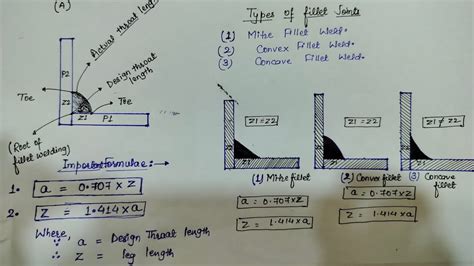 (A)
Actual throat length
Design throat length
P2
Z2
Z1
P1
Toe
Toe
(Root of fillet welding)
Important formulae :→
1. a = 0.707 x z
2. z = 1.414 x a
Where,
∵ a = Design Throat length
∴ z = leg length
Types of fillet Joints
(1) Mitre Fillet Weld.
(2) Convex Fillet Weld.
(3) Concave Fillet Weld.
Z1 = Z2
Z1 = Z2
Z1 ≠ Z2
(1) Mitre fillet
(2) Convex fillet
(3) Concave fillet
a = 0.707 x z
z = 1.414 x a
a = 0.707 x z
z = 1.414 x a